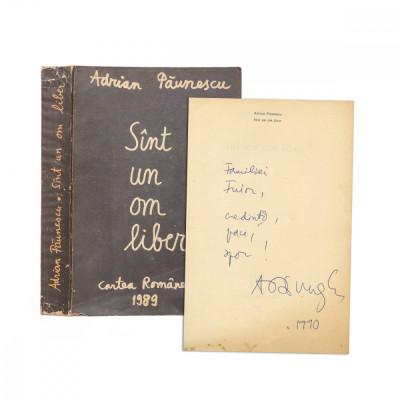 Adrian Păunescu • Sînt un om liber
Adrian Păunescu
Sînt
un
om
liber
Cartea Române
1989
Adrian Păunescu
Sînt un om liber
Familiei
credință,
pace,
spor!
1990